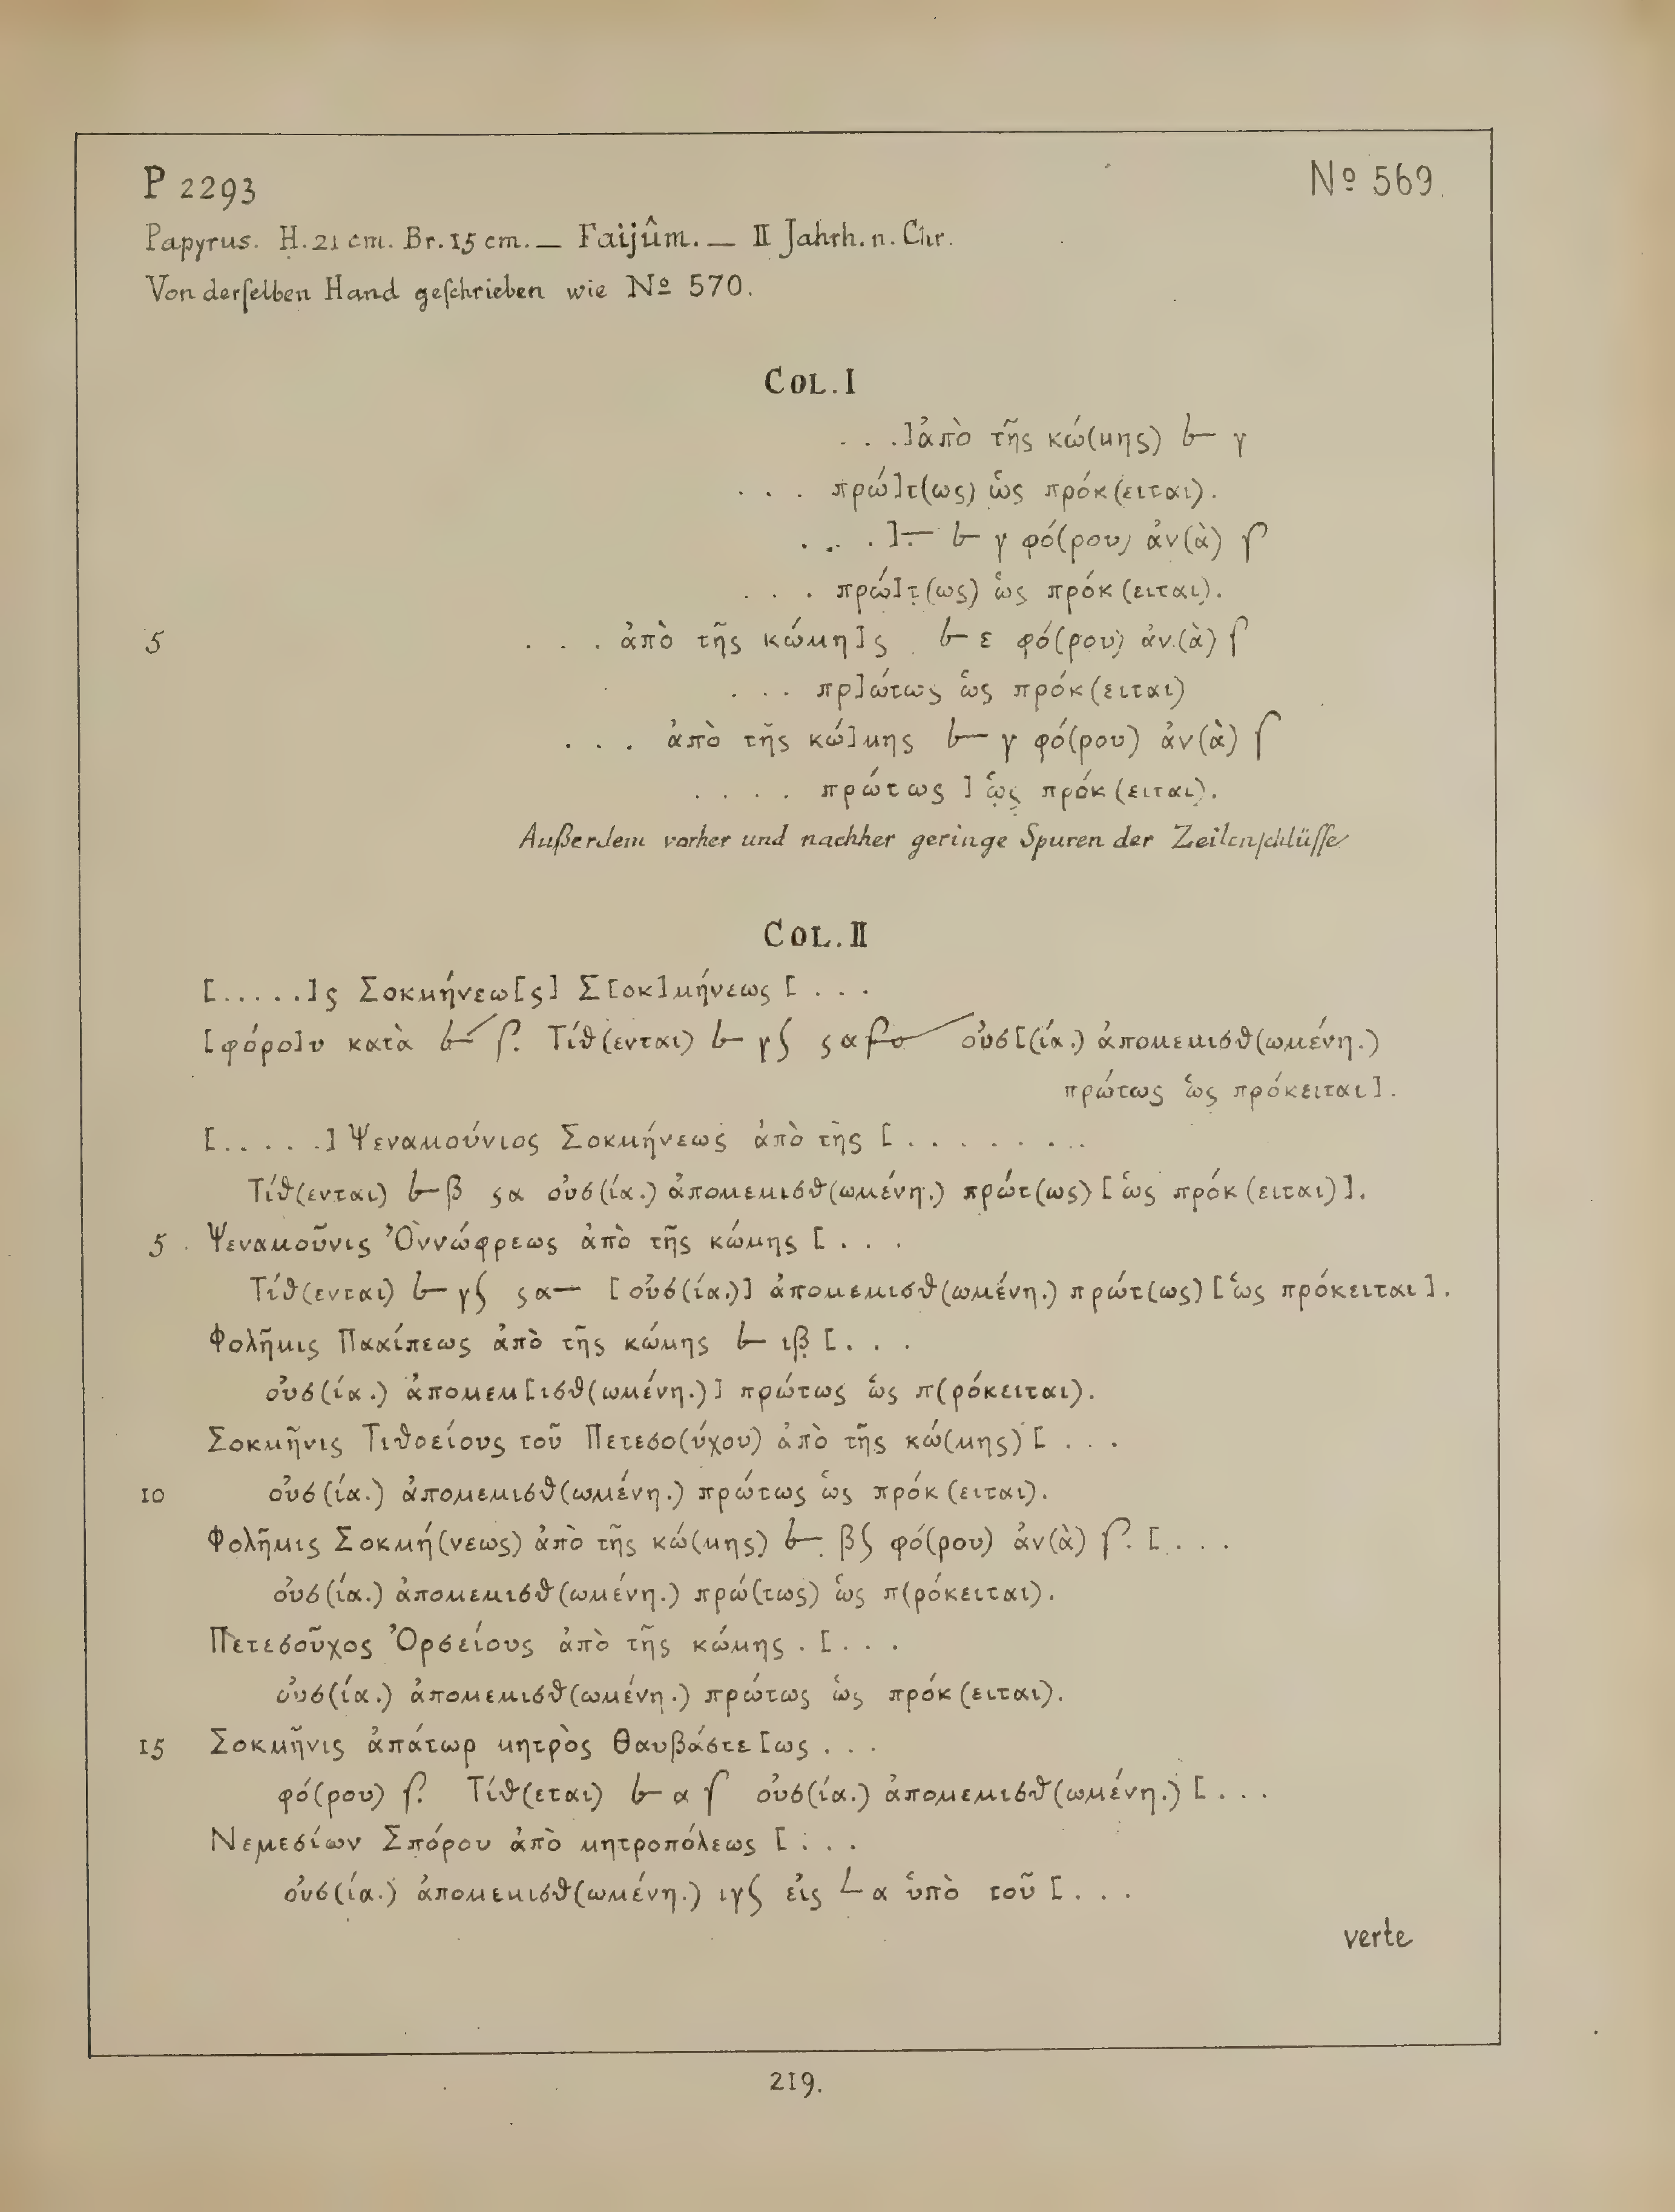 P 2293
Nº 569.
Papyrus. H. 21 cm. Br. 15 cm. — Faijûm. — II Jahrh. n. Chr.
Von derſelben Hand geſchrieben wie Nº 570.
COL. I
. . .]ἀπὸ τῆς κώ(μης) 𐅽 γ
. . . πρώ]τ(ως) ὡς πρόκ(ειται).
. . . .]— 𐅽 γ φό(ρου) ἀν(ὰ)
. . . πρώ]τ̣(ως) ὡς πρόκ(ειται).
5 . . . ἀπὸ τῆς κώμη]ς 𐅽 ε φό(ρου) ἀν(ὰ) ʃ
. . . πρ]ώτως ὡς πρόκ(ειται)
. . . ἀπὸ τῆς κώ]μης 𐅽 γ φό(ρου) ἀν(ὰ) ʃ
. . . . πρώτως ] ὡς̣ πρόκ(ειται).
Außerdem vorher und nachher geringe Spuren der Zeilenſchlüſſe
COL. II
[.....]ς Σοκμήνεω[ς] Σ[οκ]μήνεως [ . . .
[φόρο]υ κατὰ 𐅽 ʃ. Τίθ(ενται) 𐅽 γʃ ςα οὐσ[(ία.) ἀπομεμισθ(ωμένη.)
πρώτως ὡς πρόκειται].
[.....] Ψεναμούνιος Σοκμήνεως ἀπὸ τῆς [ . . . . . . . .
Τίθ(ενται) 𐅽 β ςα οὐσ(ία.) ἀπομεμισθ(ωμένη.) πρώτ(ως) [ὡς πρόκ(ειται)].
5 Ψεναμοῦνις Ὀννώφρεως ἀπὸ τῆς κώμης [ . . .
Τίθ(ενται) 𐅽 γʃ ςα— [οὐσ(ία.)] ἀπομεμισθ(ωμένη.) πρώτ(ως) [ὡς πρόκειται].
Φολῆμις Πακίπεως ἀπὸ τῆς κώμης 𐅽 ιβ̣ [. . .
οὐσ(ία.) ἀπομεμ[ισθ(ωμένη.)] πρώτως ὡς π(ρόκειται).
Σοκμῆνις Τιθοείους τοῦ Πετεσο(ύχου) ἀπὸ τῆς κώ(μης) [ . . .
10 οὐσ(ία.) ἀπομεμισθ(ωμένη.) πρώτως ὡς πρόκ(ειται).
Φολῆμις Σοκμή(νεως) ἀπὸ τῆς κώ(μης) 𐅽 βʃ φό(ρου) ἀν(ὰ) ʃ. [. . .
οὐσ(ία.) ἀπομεμισθ(ωμένη.) πρώ(τως) ὡς π(ρόκειται).
Πετεσοῦχος Ὀρσείους ἀπὸ τῆς κώμης . [. . .
οὐσ(ία.) ἀπομεμισθ(ωμένη.) πρώτως ὡς πρόκ(ειται).
15 Σοκμῆνις ἀπάτωρ μητρὸς Θαυβάστε[ως . . .
φό(ρου) ʃ. Τίθ(εται) 𐅽 α ʃ οὐσ(ία.) ἀπομεμισθ(ωμένη.) [. . .
Νεμεσίων Σπόρου ἀπὸ μητροπόλεως [ . . .
οὐσ(ία.) ἀπομεμισθ(ωμένη.) ιγʃ εἰς 𐅹 α ὑπὸ τοῦ [. . .
verte
219.